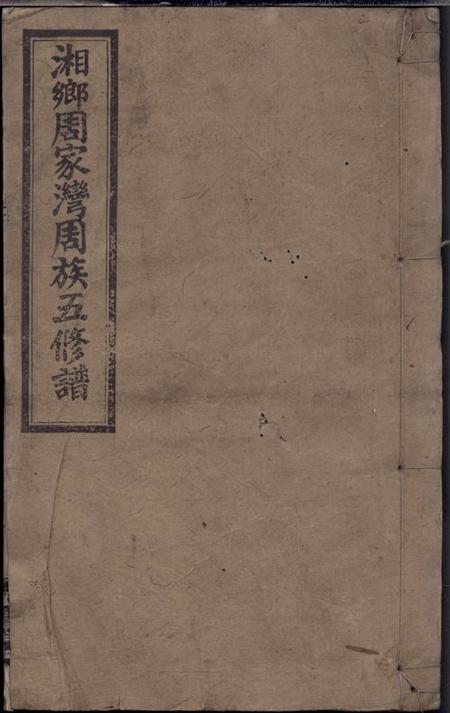 湘鄉周家灣周族五修譜